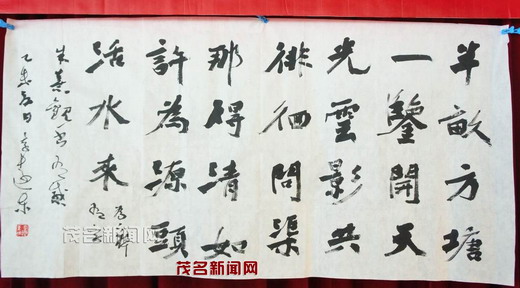 半畝方塘
一鑒開天
光雲影共
徘徊問渠
那得清如
許為源頭
活水來
朱熹觀書有感
茂名新闻网
茂名新闻网